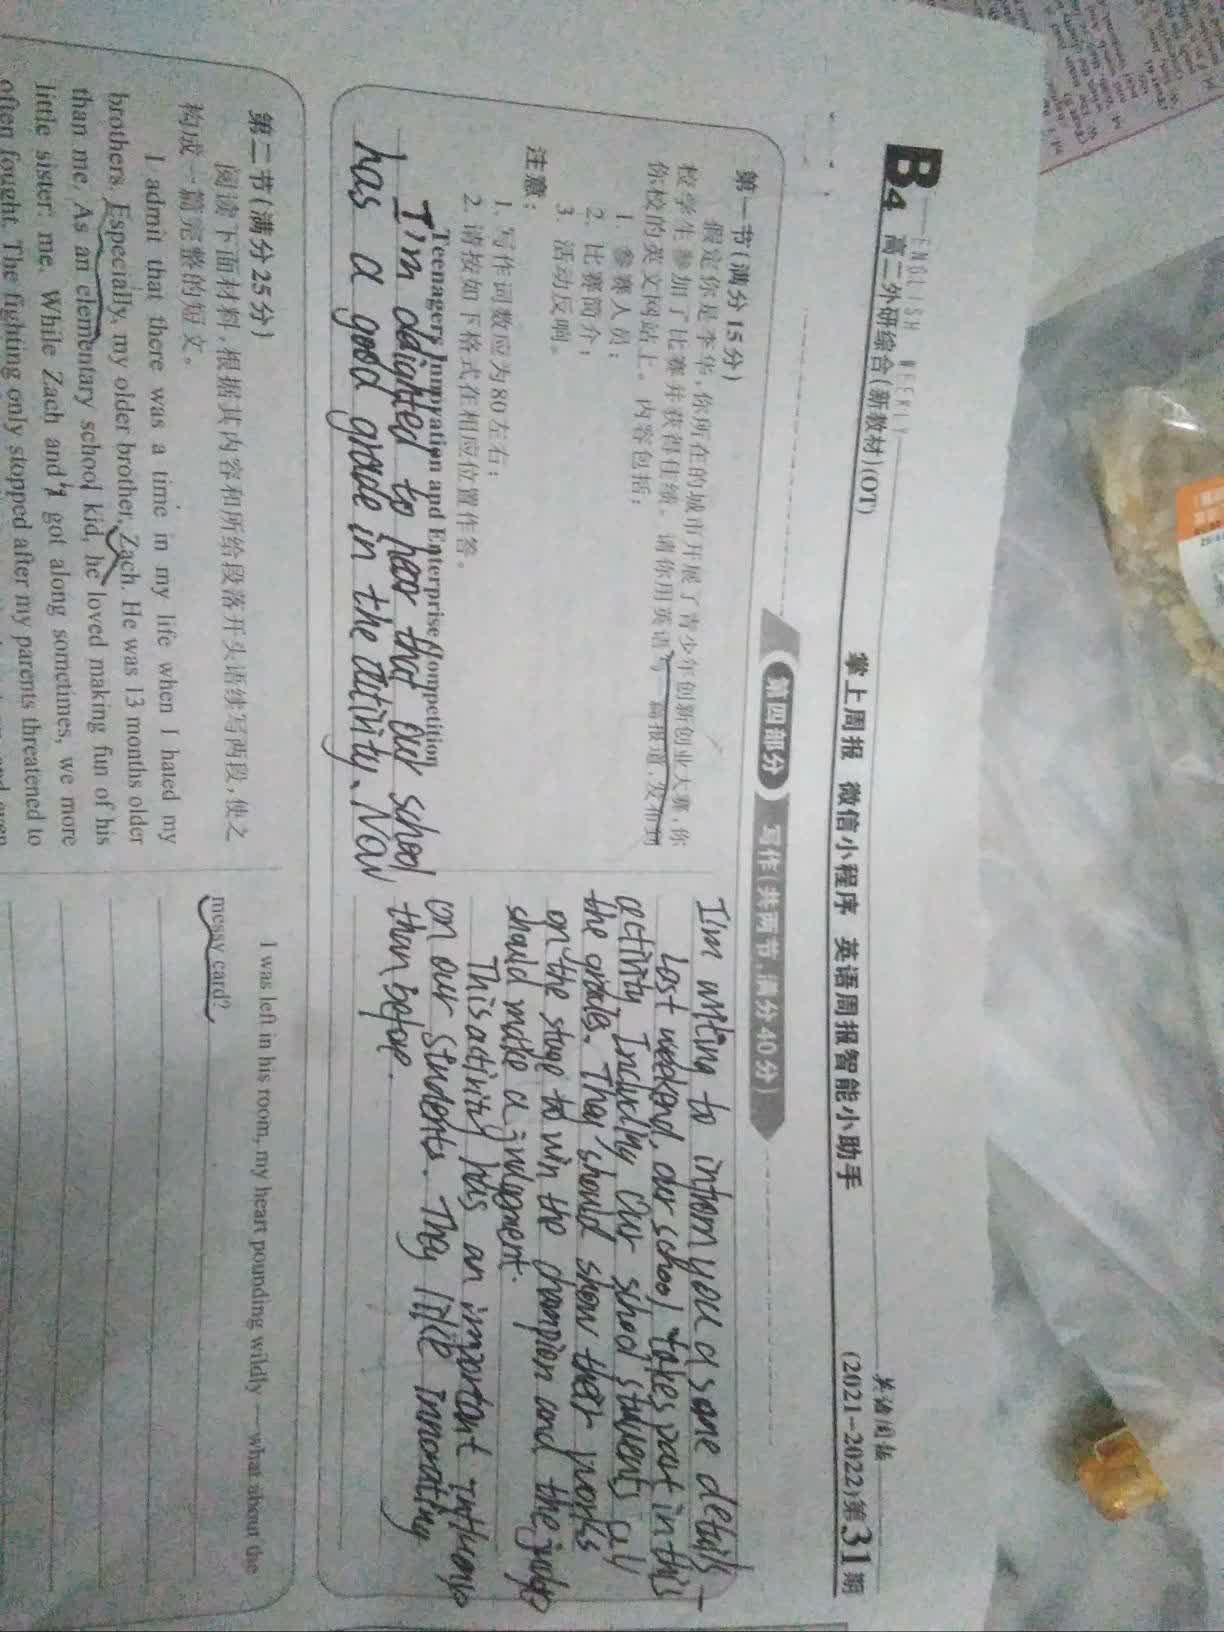 B4
ENGLISH WEEKLY
高二外研综合(新教材)(OT)
掌上周报 微信小程序 英语周报智能小助手
英语周报
(2021-2022)第31期
第四部分 写作(共两节,满分40分)
第一节(满分15分)
假定你是李华,你所在的城市开展了青少年创新创业大赛,你
校学生参加了比赛并获得佳绩。请你用英语写一篇报道,发布到
你校的英文网站上。内容包括:
1. 参赛人员;
2. 比赛简介;
3. 活动反响。
注意:
1. 写作词数应为80左右;
2. 请按如下格式在相应位置作答。
Teenagers Innovation and Enterprise Competition
I'm delighted to hear that our school
has a good grade in the activity. Now
I'm writing to inform you a some details
Last weekend, our school takes part in this
activity. Including our school students all
the grades. They should show their works
on the stage to win the champion and the judge
should make a judgement.
This activity has an important influence
on our students. They like innovating
than before.
第二节(满分25分)
阅读下面材料,根据其内容和所给段落开头语续写两段,使之
构成一篇完整的短文。
I admit that there was a time in my life when I hated my
brothers. Especially, my older brother, Zach. He was 13 months older
than me. As an elementary school kid, he loved making fun of his
little sister: me. While Zach and I got along sometimes, we more
often fought. The fighting only stopped after my parents threatened to
I was left in his room, my heart pounding wildly—what about the
messy card?